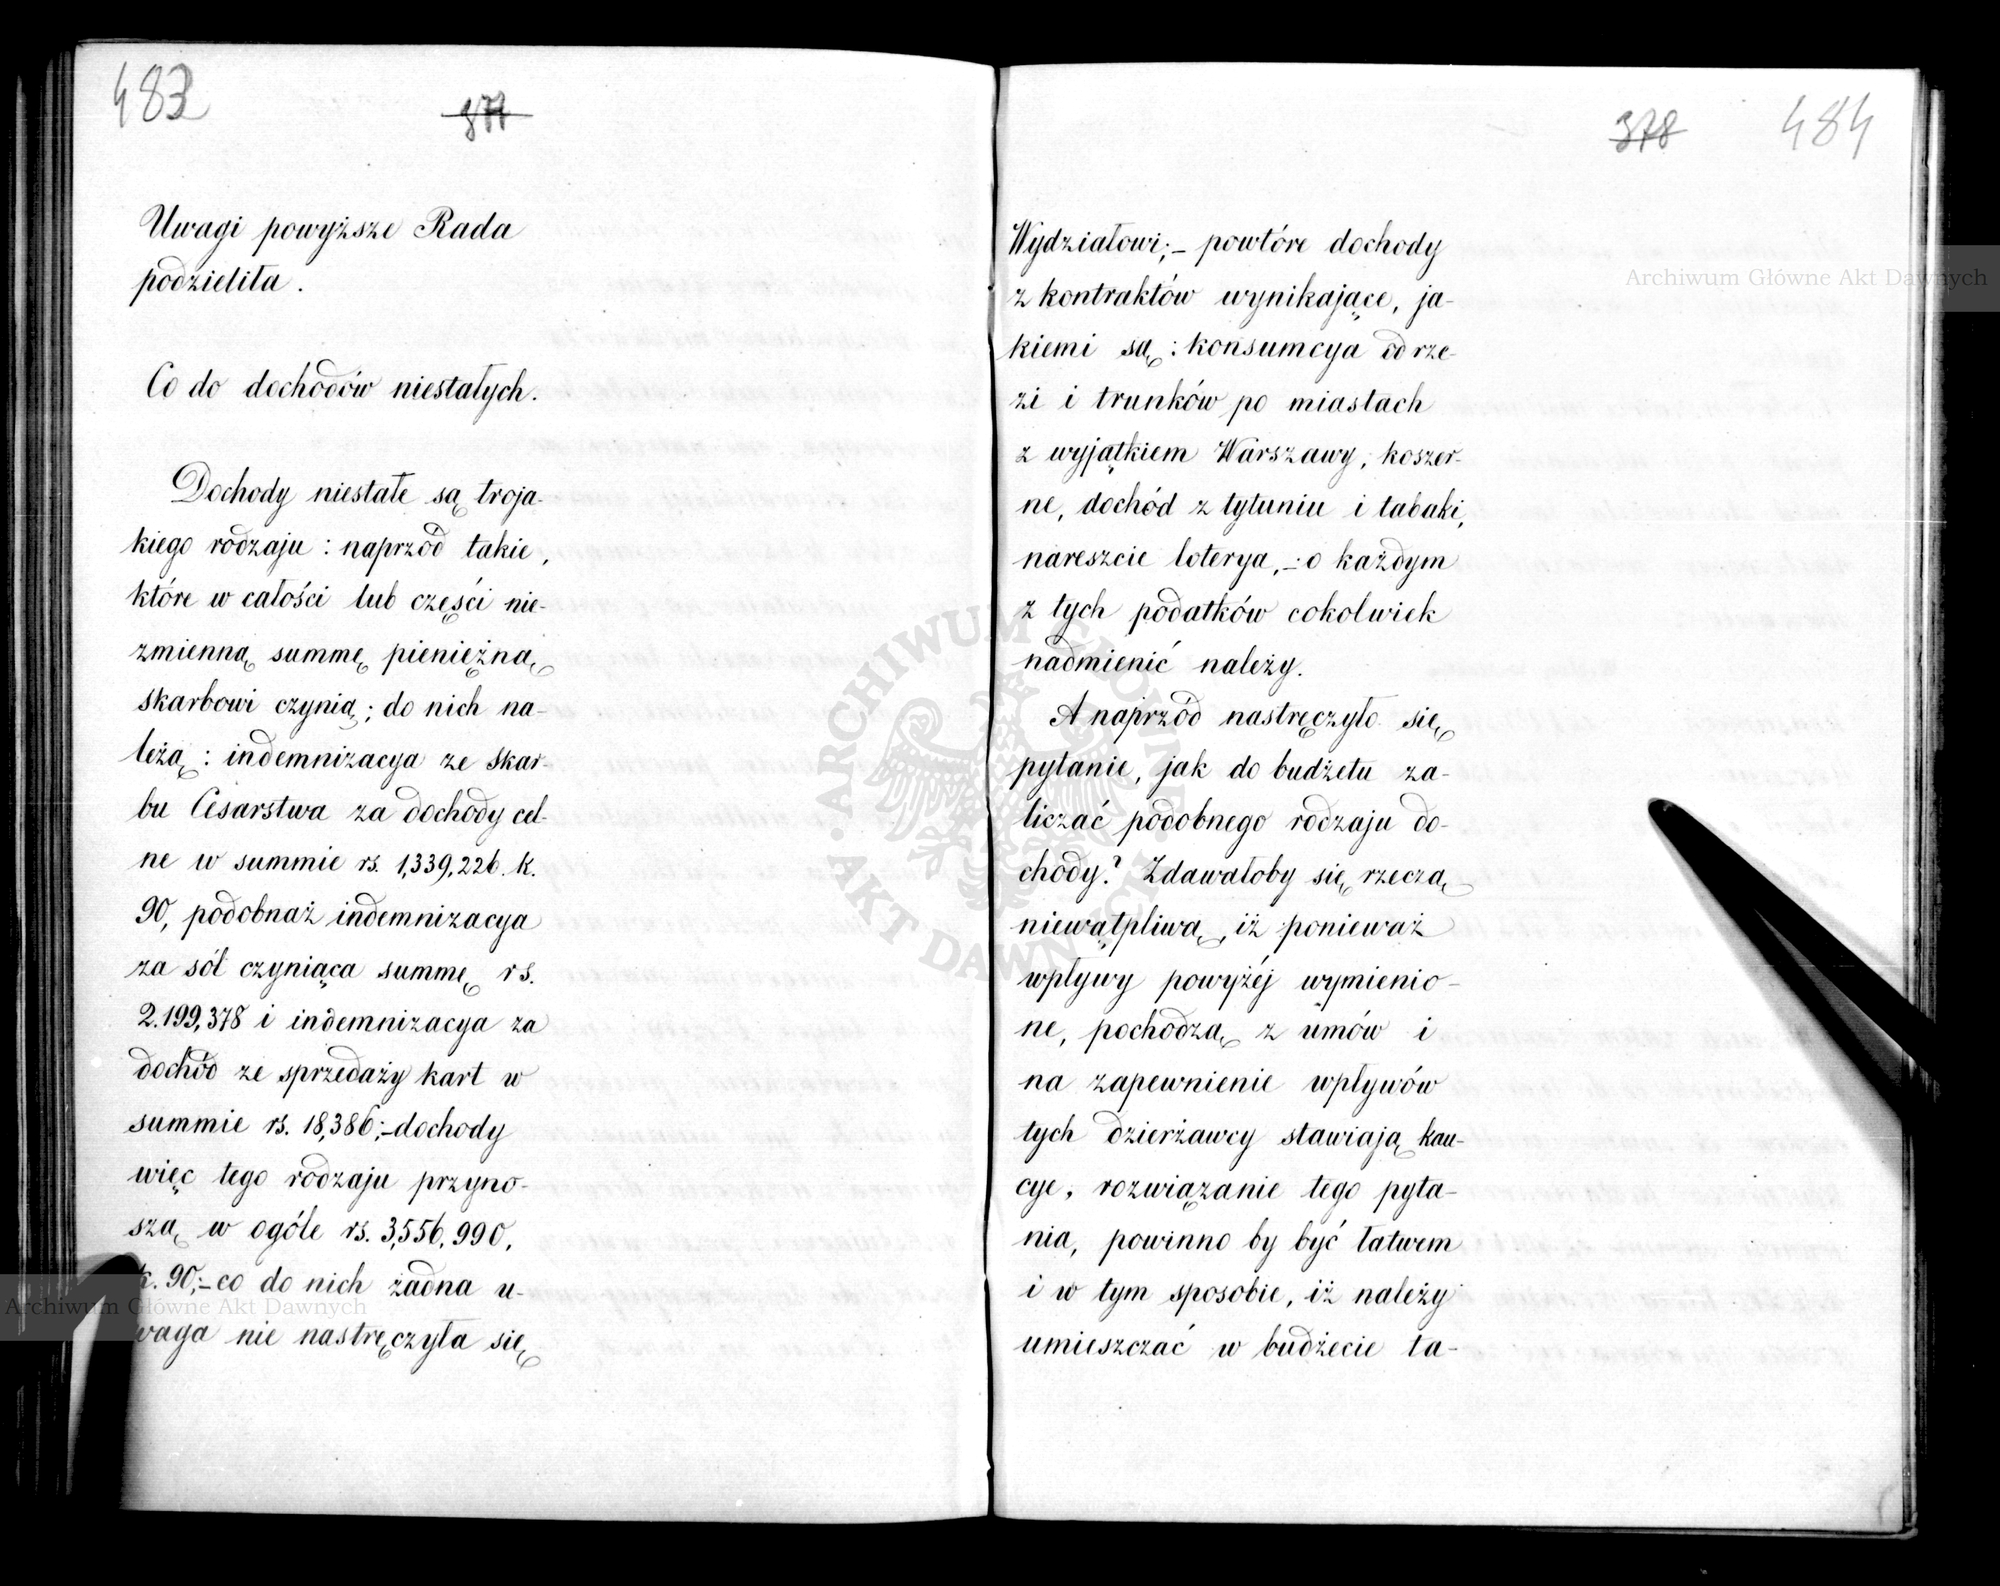 483
377
Uwagi powyższe Rada
podzieliła.
Co do dochodów niestałych.
Dochody niestałe są troja-
kiego rodzaju: naprzód takie,
które w całości lub częśći nie-
zmienną summę pieniężną
skarbowi czynią; do nich na-
leżą: indemnizacya ze skar-
bu Cesarstwa za dochody cel-
ne w summie rs. 1,339,226. k.
90, podobnaż indemnizacya
za sól czyniąca summę rs.
2.199,378 i indemnizacya za
dochód ze sprzedaży kart w
summie rs. 18,386;–dochody
więc tego rodzaju przyno-
szą w ogóle rs. 3,556,990,
k. 90;–co do nich żadna u-
waga nie nastręczyła się
378
484
Wydziałowi;– powtóre dochody
z kontraktów wynikające, ja-
kiemi są: konsumcya od rze-
zi i trunków po miastach
z wyjątkiem Warszawy, koszer-
ne, dochód z tytuniu i tabaki,
nareszcie loterya,–o każdym
z tych podatków cokolwiek
nadmienić należy.
A naprzód nastręczyło się
pytanie, jak do budżetu za-
liczać podobnego rodzaju do-
chody? Zdawałoby się rzeczą
niewątpliwą, iż ponieważ
wpływy powyżéj wymienio-
ne, pochodzą z umów i
na zapewnienie wpływów
tych dzierżawcy stawiają kau-
cye, rozwiązanie tego pyta-
nia, powinno by być łatwem
i w tym sposobie, iż należy
umieszczać w budżecie ta-
Archiwum Główne Akt Dawnych
Archiwum Główne Akt Dawnych
ARCHIWUM GŁÓWNE AKT DAWNYCH